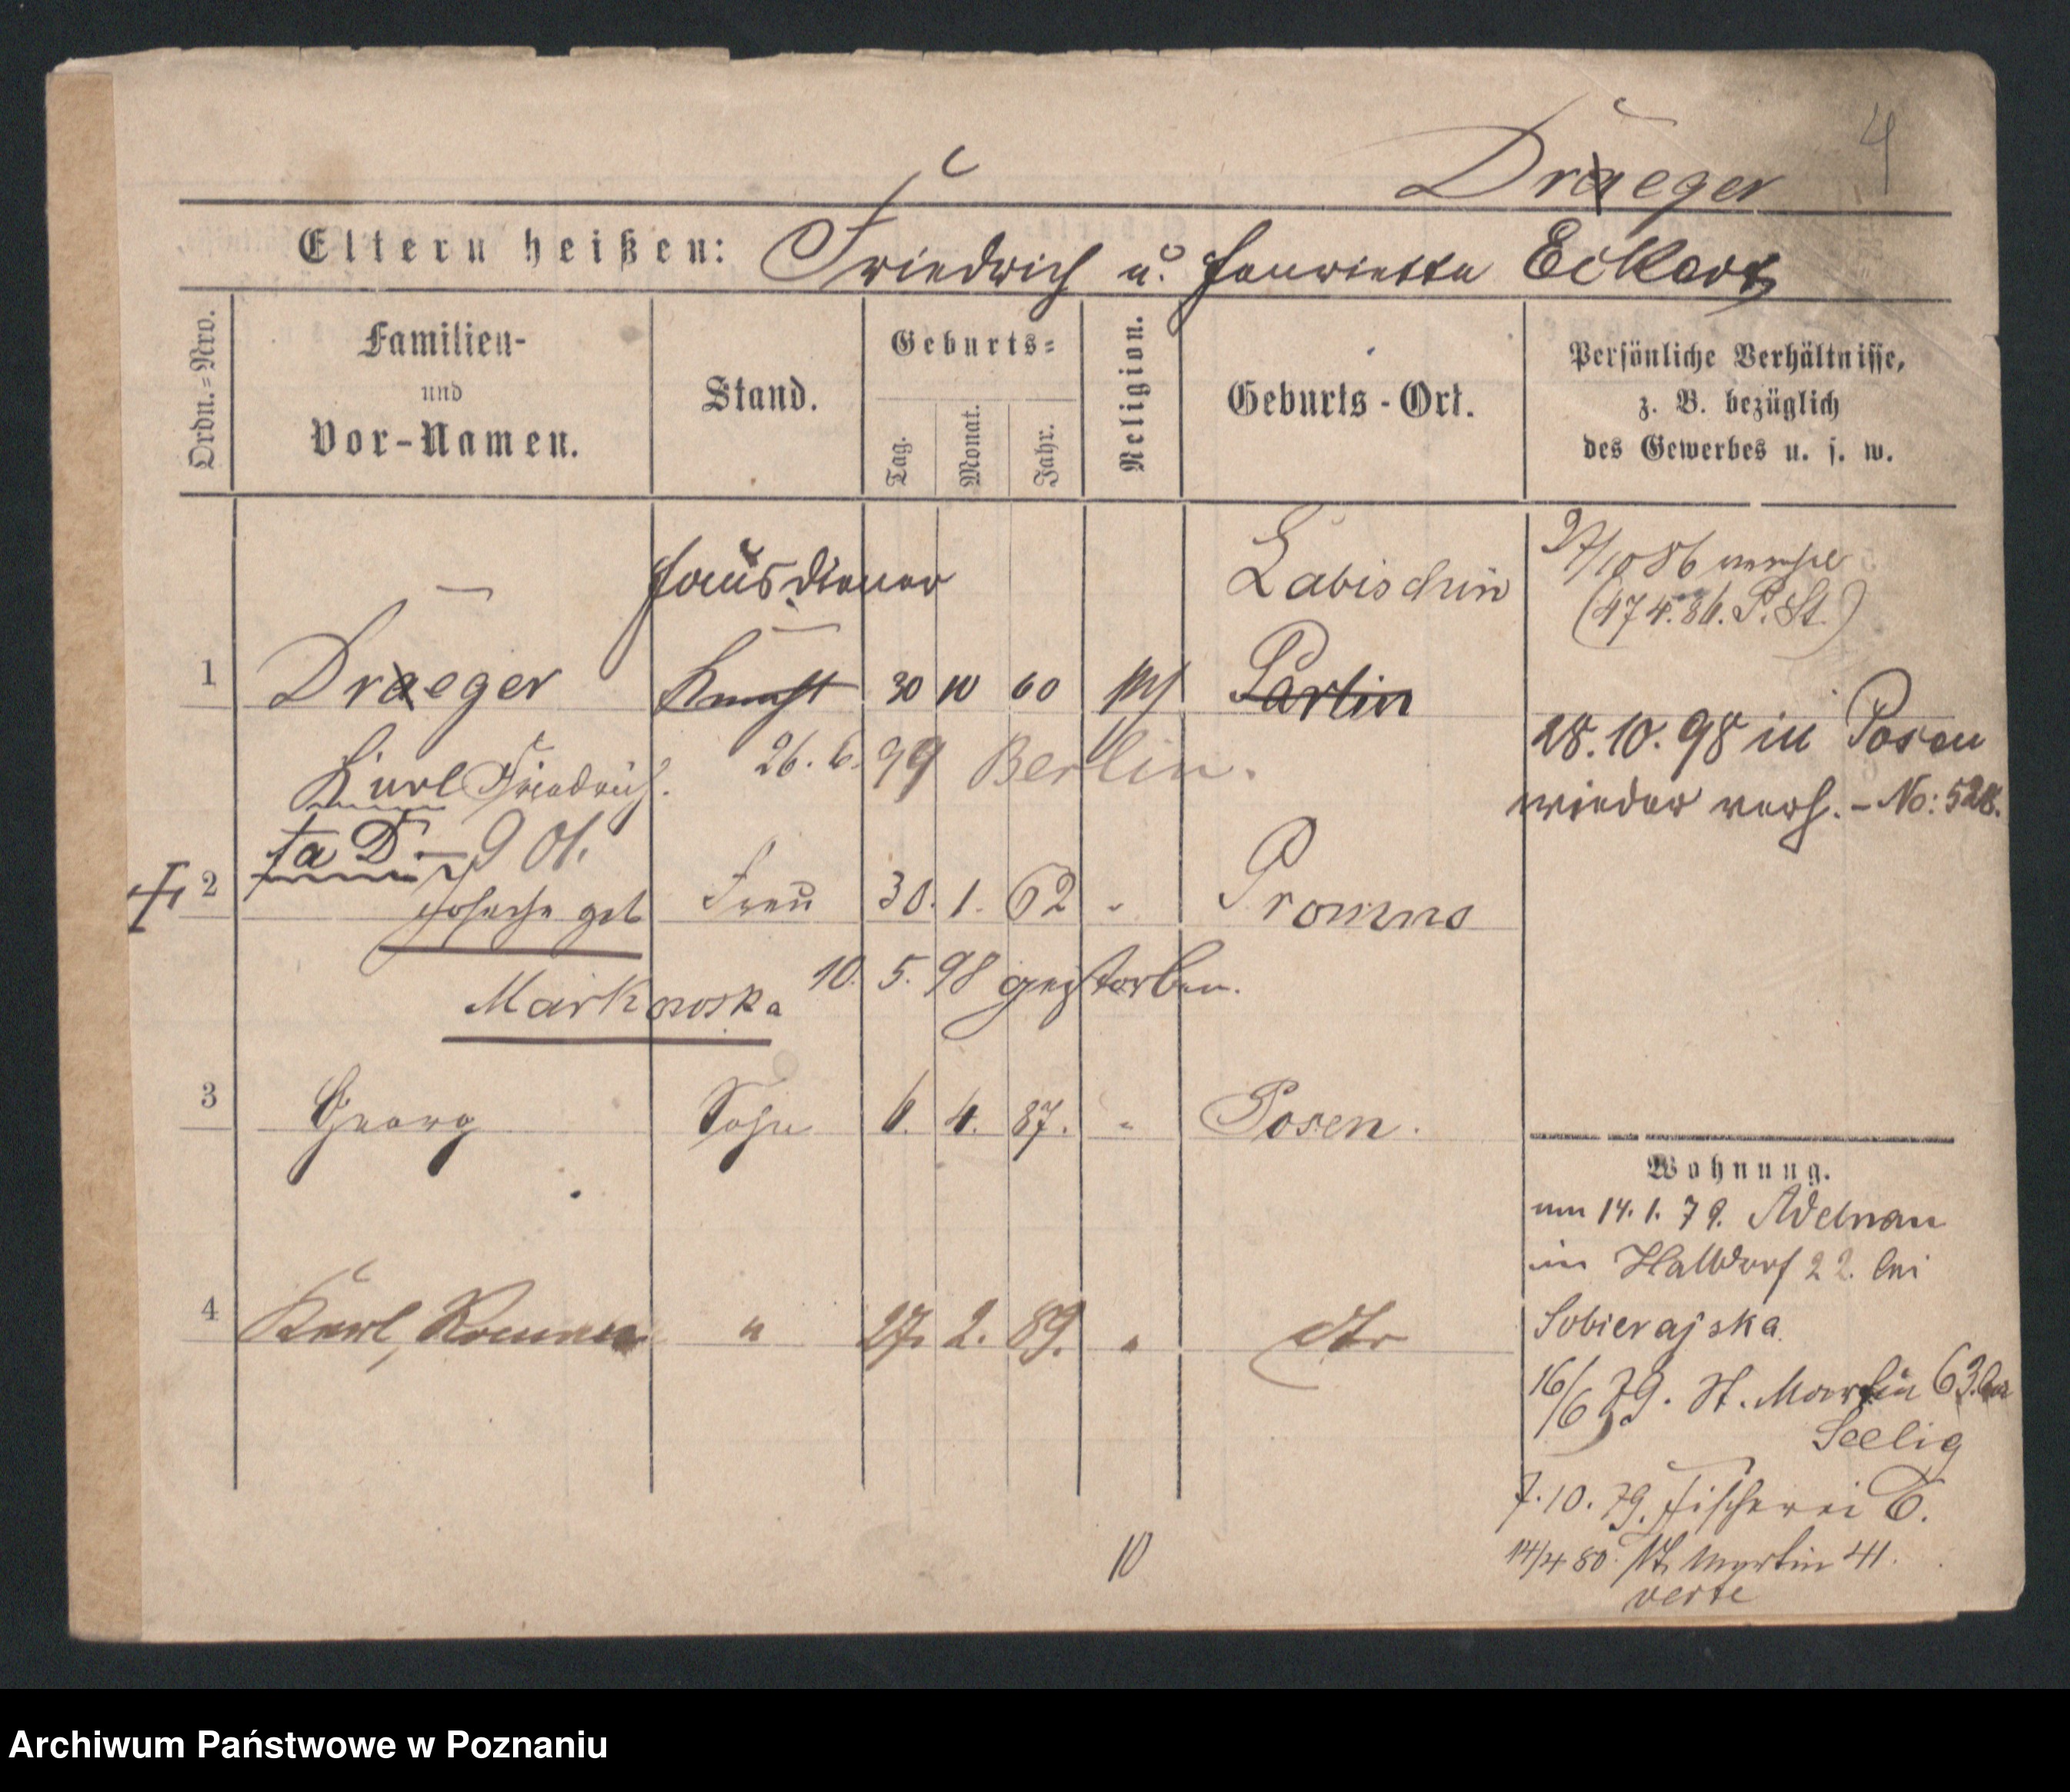 4
Draeger
Eltern heißen: Friedrich u. Henriette Eckert
Ordn.=Nro.
Familien-
und
Vor-Namen.
Stand.
Geburts=
Tag.
Monat.
Jahr.
Religion.
Geburts-Ort.
Persönliche Verhältnisse,
z. B. bezüglich
des Gewerbes u. s. w.
Hausdiener
Labischin
1 Draeger Knecht 30 10 60 Parlin
Karl Friedrich.
26. 6. 99 Berlin.
2 Frau 30. 1. 62 " Promno
geb
Markowska
10. 5. 98 gestorben.
3 Georg Sohn 6. 4. 87. " Posen.
4 Karl, Roman " 27. 2. 89. " dto
27/10 86
(474.86. P. St.)
28. 10. 98 in Posen
wieder verh. - No: 528.
Wohnung.
um 14. 1. 79. Adelnau
in Halldorf 22. bei
Sobierajska
16/6 79. St. Martin 63. bei
Seelig
7. 10. 79. Fischerei 6.
14/4 80. St. Martin 41.
verte
10
Archiwum Państwowe w Poznaniu